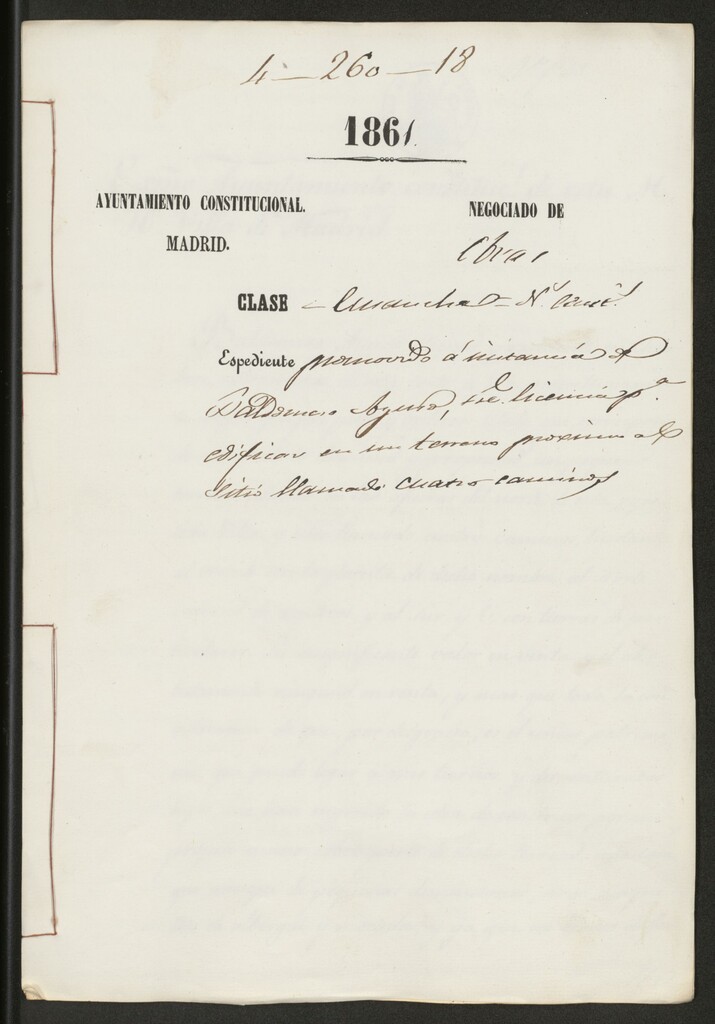 4 — 260 — 18
1861
AYUNTAMIENTO CONSTITUCIONAL.
MADRID.
NEGOCIADO DE
Obras
CLASE Ensanche
Espediente promovido á instancia de
Baldomero, licencia pa.
edificar en un terreno proximo al
sitio llamado cuatro caminos